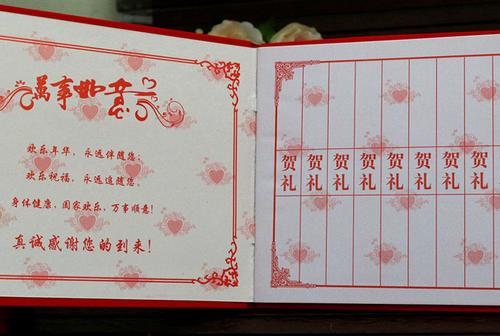 萬事如意
欢乐年华，永远伴随您；
欢乐祝福，永远追随您。
身体健康，阖家欢乐，万事顺意！
真诚感谢您的到来！
贺礼 贺礼 贺礼 贺礼 贺礼 贺礼 贺礼 贺礼